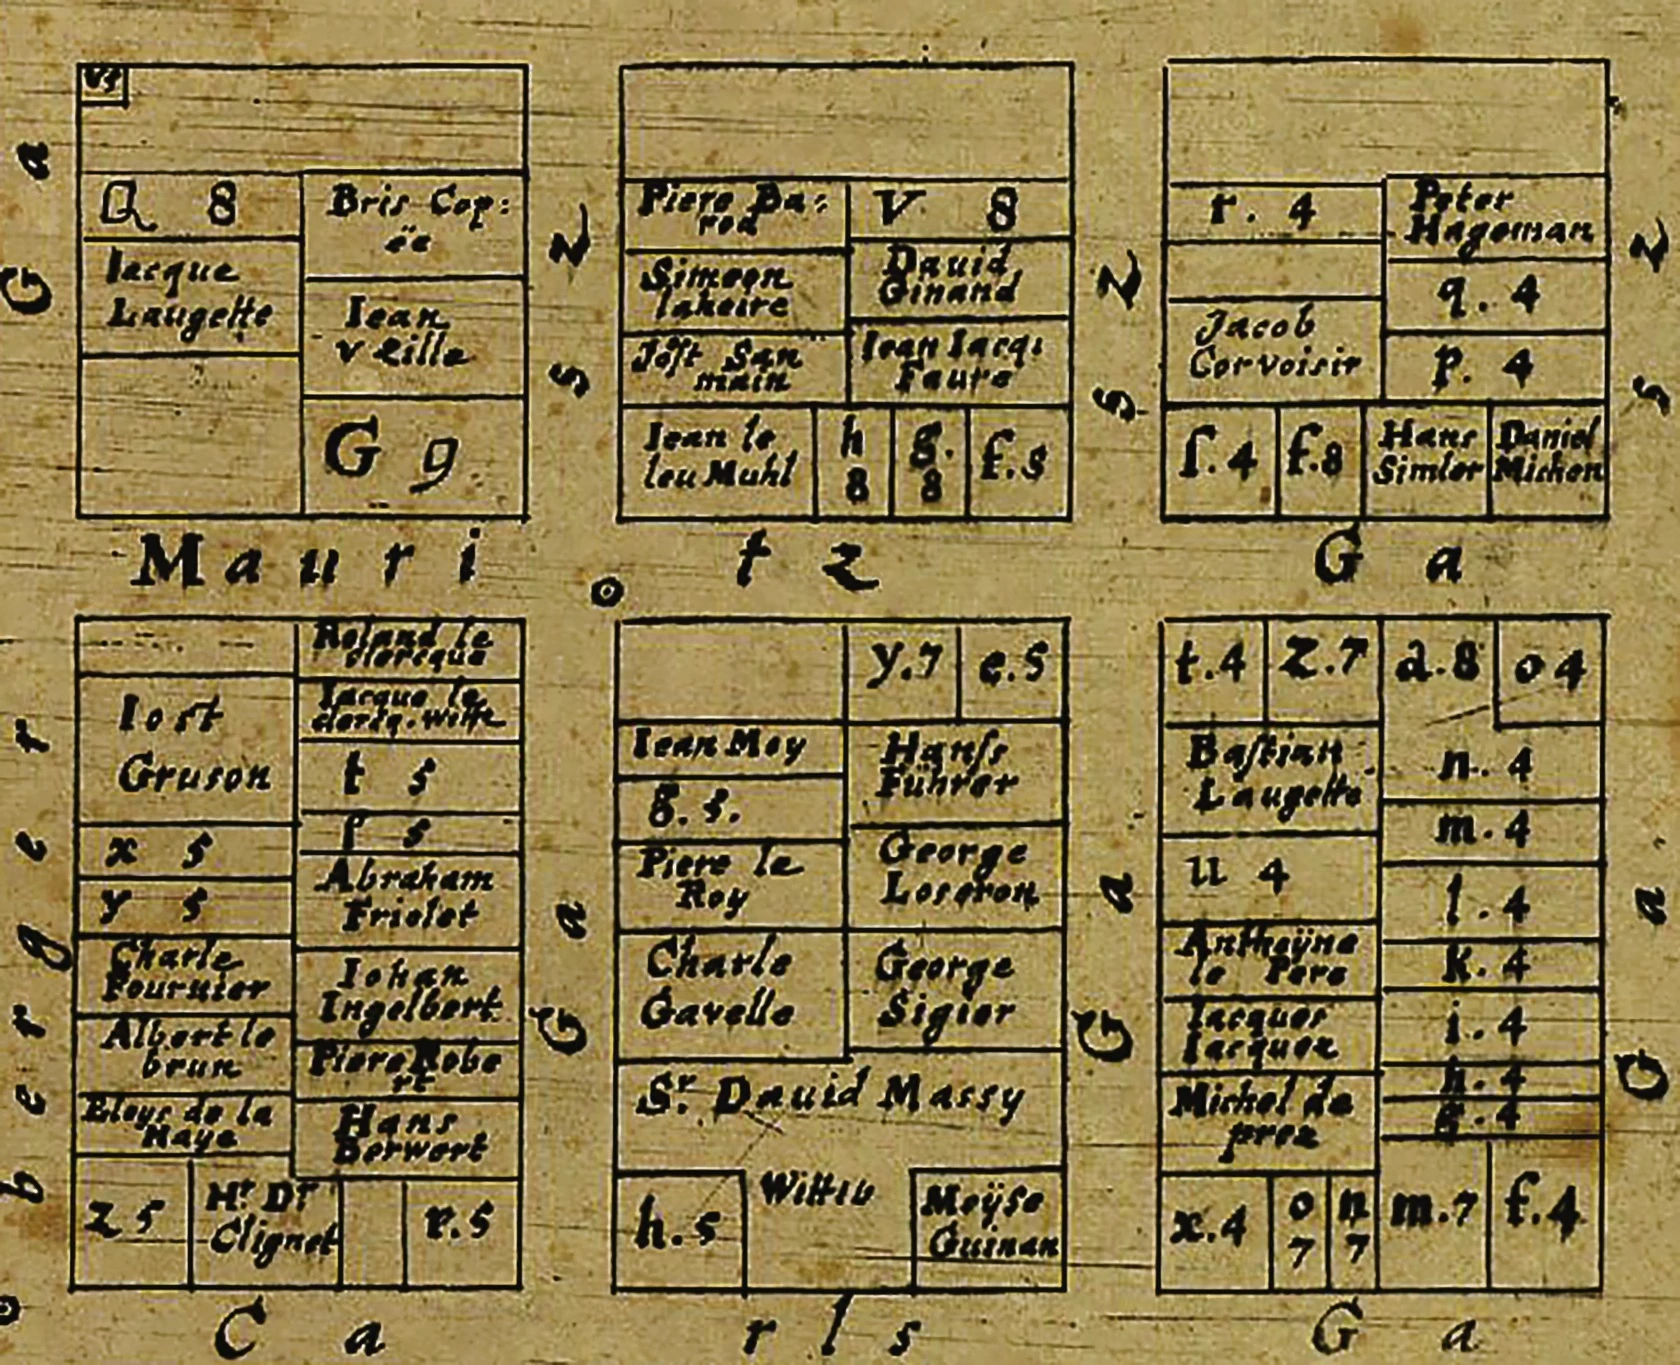 Q 8
Bris Cop:
ëe
Iacque
Laugette
Iean
v Rille
G 9
Piere Ba:
rod
V 8
Simeon
lakeire
Dauid
Ginand
Jost San
main
Iean Iacqi
Faure
Iean le
leu Muhl
h
8
g.
8
f.5
r. 4
Peter
Hageman
q. 4
Jacob
Corvoisir
p. 4
ſ.4
f.8
Hans
Simler
Daniel
Michon
G a
s z
s z
s z
M a u r i t z G a
Roland le
clercque
Iacque le
clercq. witte
Iort
Gruson
t 5
x 5
ſ 5
y 5
Abraham
Friolet
Charle
Fournier
Iohan
Ingelbert
Albert le
brun
Piere Robe
rt
Eloys de la
Haye
Hans
Berwert
z 5
Hr. Dr
Clignet
r.5
y.7
e.5
Iean Moy
Hanſs
Fuhrer
g. 5.
Piere le
Roy
George
Loseron
Charle
Gavelle
George
Sigier
Sr. Dauid Massy
h.5
Wittib
Moÿse
Guinan
t.4
Z.7
a.8
o 4
Baſtian
Laugette
n. 4
m. 4
u 4
l. 4
Anthoÿne
le Pere
k. 4
Iacques
Iacquez
i. 4
h. 4
g. 4
Michel de
prez
x.4
o
7
n
7
m.7
f.4
b e r g e r
G a
G a
G a
C a r l s G a